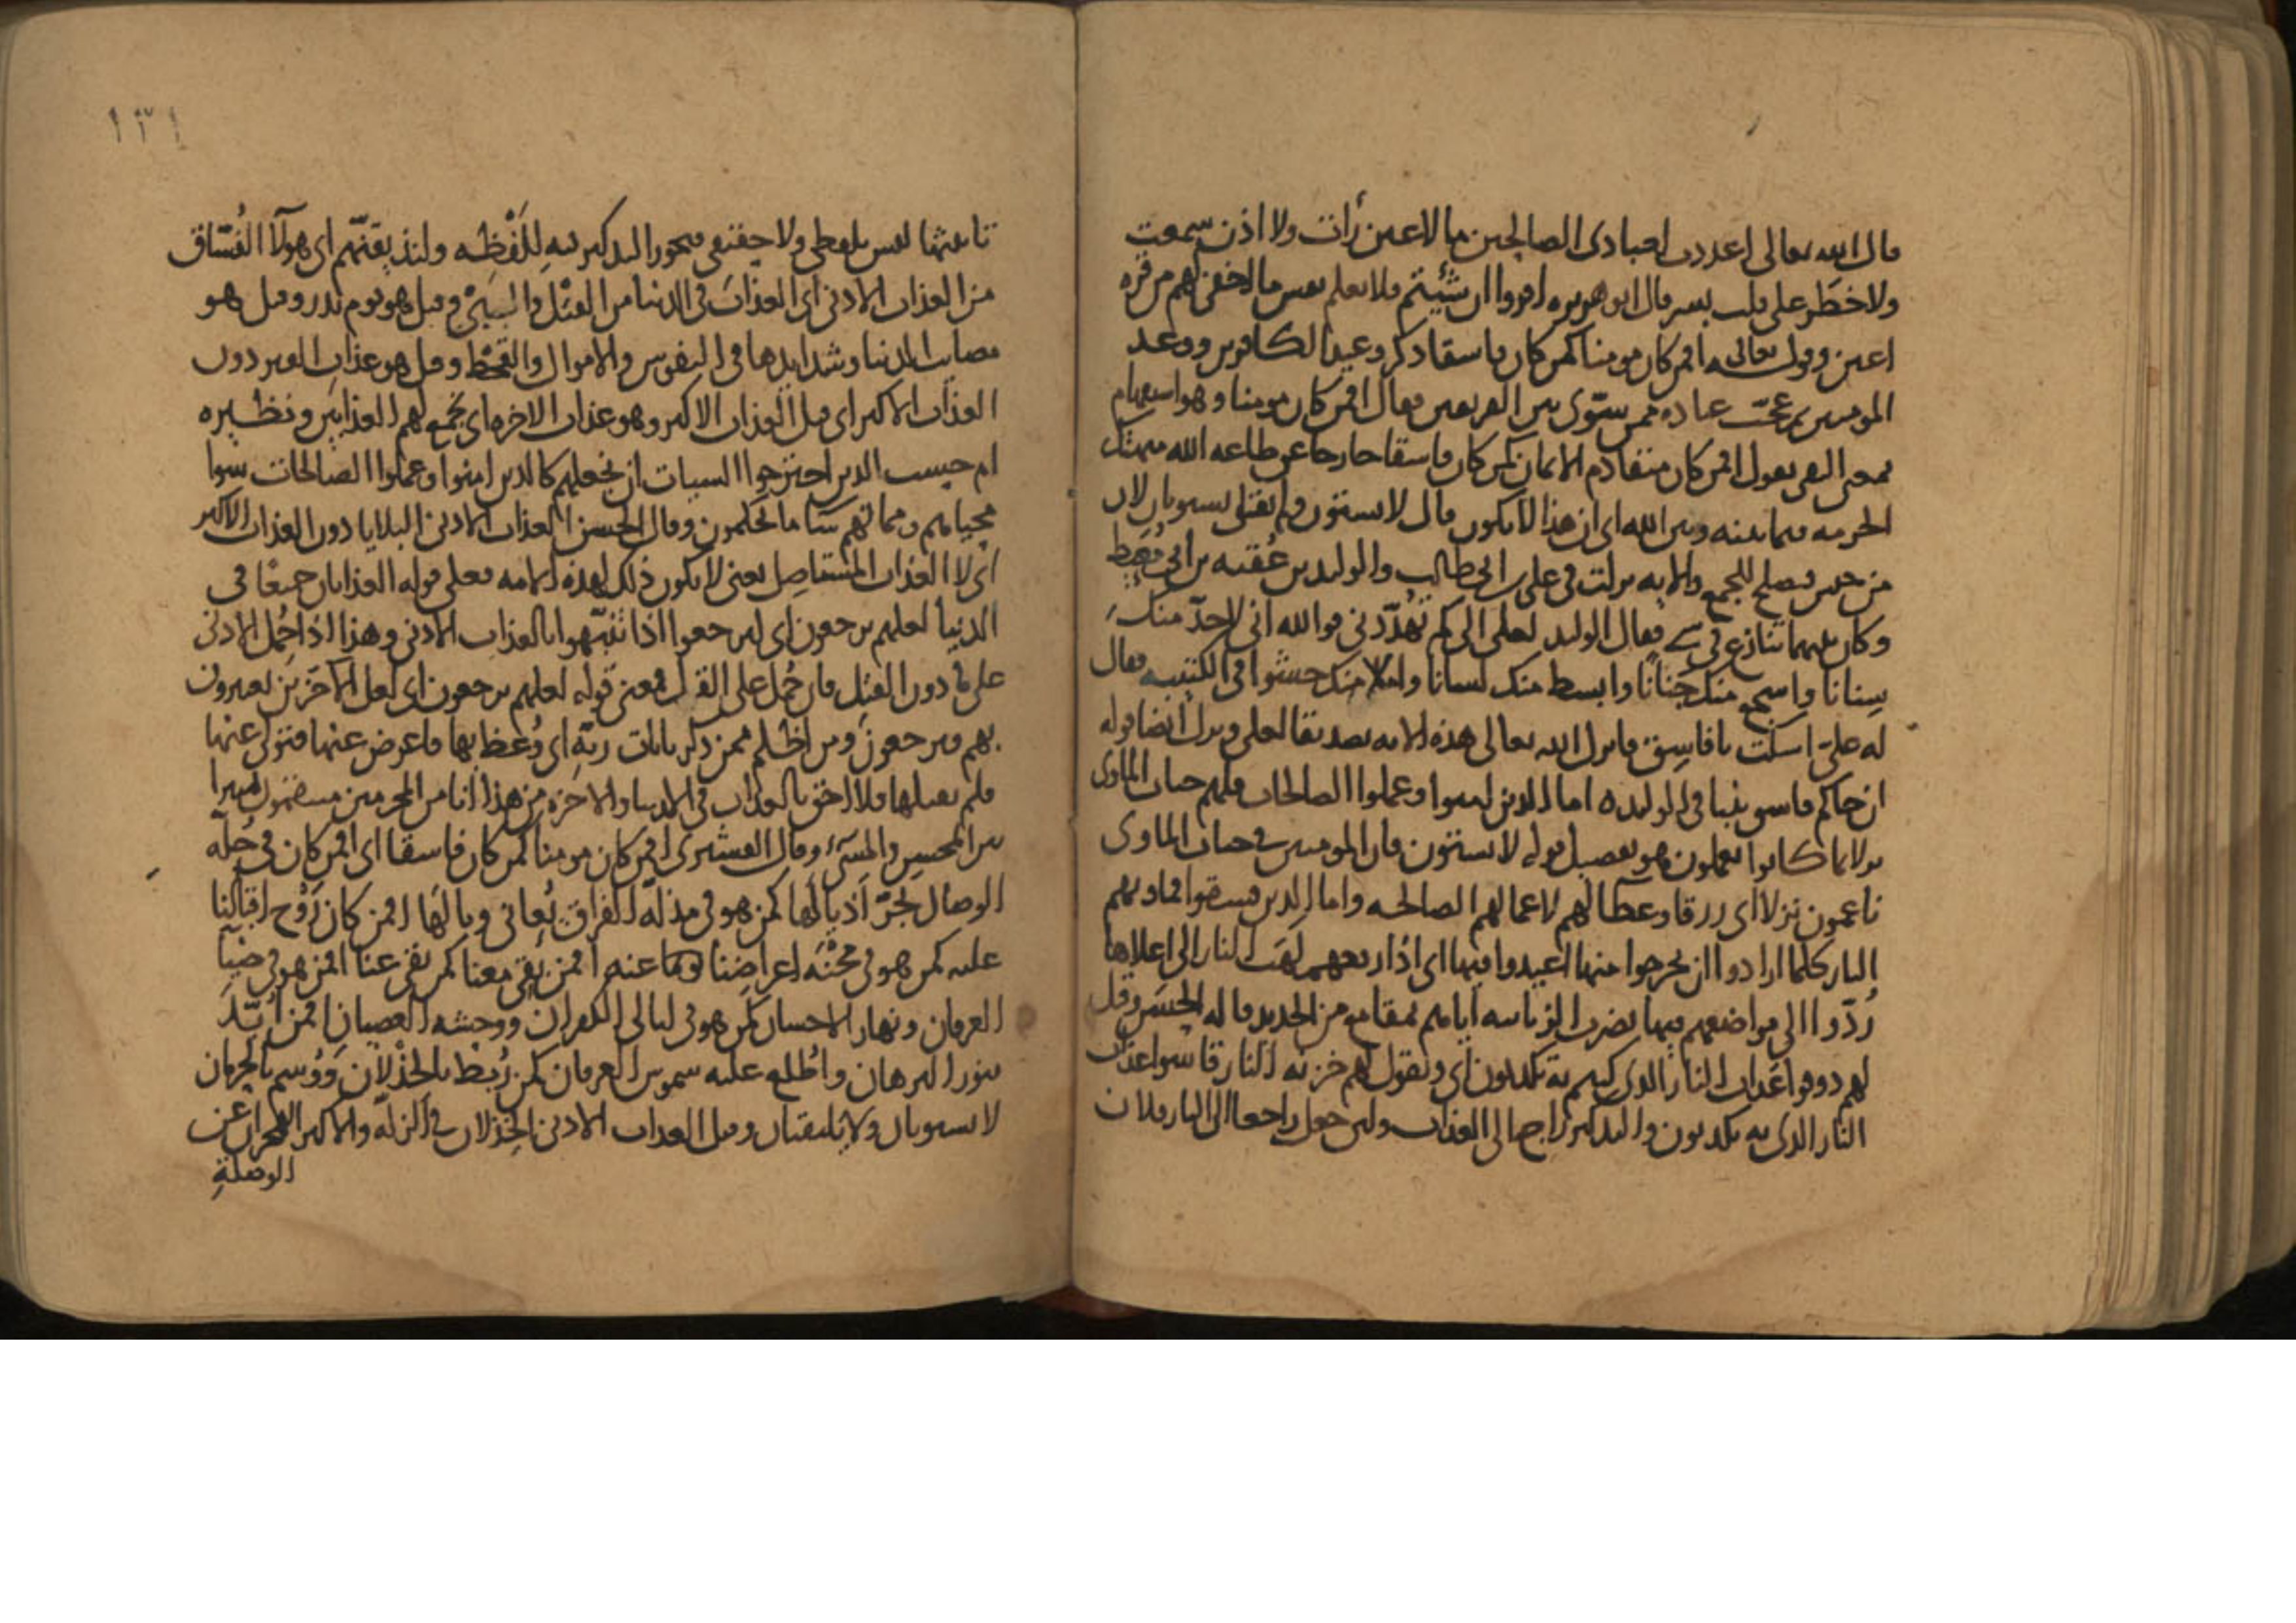 قال الله تعالى اعددت لعبادى الصالحين ما لا عين رأت ولا اذن سمعت
ولا خطر على قلب بشر قال ابو هريره اقروا ان شئتم فلا تعلم نفس ما اخفى لهم من قره
اعين وقوله تعالى افمن كان مومنا كمن كان فاسقا ذكر وعيد الكافرين ووعد
المومنين ثم عجّب عباده ممن يسوّى بين الفريقين فقال افمن كان مومنا وهو استفهام
بمعنى النفى يقول افمن كان منقادم الايمان كمن كان فاسقا خارجا عن طاعه الله
الحرمه فيما بينه وبين الله اى ان هذا لا يكون قال لا يستوون ولم يقل يستويان لان
من جنس فيصلح للجمع والايه نزلت فى على بن ابى طالب والوليد بن عُقبه بن ابى مُعَيط
وكان بينهما تنازع فى شى فقال الوليد لعلى الى كم تهدّدنى فوالله انى لاحدّ منك
سِنانا واشجع منك جَنانًا وابسط منك لسانا واملا منك حشوا فى الكتيبه فقال
له علىّ اسكت يا فاسِق فانزل الله تعالى هذه الايه تصديقا لعلى ونزل ايضا قوله
ان جاكم فاسق بنبا فى الوليد ه اما الذين امنوا وعملوا الصالحات فلهم جنات الماوى
نزلا بما كانوا يعملون هو تفصيل قوله لا يستوون فان المومنين فى جنات الماوى
ناعمون نزلا اى رزقا وعطا لهم لاعمالهم الصالحه واما الذين فسقوا فماويهم
النار كلما ارادوا ان يخرجوا منها اعيدوا فيها اى اذا رفعهم لهَب النار الى اعلاها
رُدّوا الى مواضعهم فيها بضرب الزبانيه اياهم بمقامع من الحديد قاله الحسَن وقيل
لهم ذوقوا عَذاب النار الذى كنتم به تكذبون اى وتقول لهم خزنه النار قاسوا عذاب
النار الذى به تكذبون والتذكير راجع الى العذاب ولئن جعل راجعا الى النار فلان
١٣١
تانيثها ليس بلفظى ولا حقيقى فيجوز التذكير فيه لِلَفْظِه ولنذيقنّهم اى هولآ الفُسّاق
من العذاب الادنى اى العذابَ فى الدنيا من القتْل والسَبْىِ وقيل هو يوم بدر وقيل هو
مصايب الدنيا وشدايدها فى النفوس والاموال والقحط وقيل هو عذاب القبر دون
العذاب الاكبر اى قبل العذاب الاكبر وهو عذاب الاخره اى يجمع لهم العذابين ونظيره
ام حسب الذين اجترحوا السيات ان نجعلهم كالذين امنوا وعملوا الصالحات سَوا
محياهم ومماتهم سآ ما يحكمون وقال الحسن العذاب الادنى البلايا دون العذاب الاكبر
اى لا العذاب المستاصِل يعنى لا يكون ذلك لهذه الامه فعلى قوله العذابان جميعًا فى
الدنيا لعلهم يرجعون اى ليرجعوا اذا تنبّهوا بالعذاب الادنى وهذا اذا حُمل الادنى
على ما دون القتل فان حُمل على القتل فمعنى قوله لعلهم يرجعون اى لعل الآخَرين يعتبرون
بهم ويرجعون ومن اظلم ممن ذكر بايات ربّه اى وُعظ بها فاعرض عنها فتولّى عنها
فلم يقبلها فلا احق بالعذاب فى الدنيا والاخره من هذا انا من المجرمين منتقمون
بين المحسِن والمُسىِٔ وقال القشيرى افمن كان مومنا كمن كان فاسقا اى افمن كان فى حُلّه
الوصال يجرّ اذيالها كمن هو فى مذلّه الفراق يُعانى وبالها افمن كان رَوْح اقبالنا
عليه كمن هو فى محنْه اعراضنا عنه افمن بقى معنا كمن بقى عنا افمن هو فى ضيآ
العرفان ونهار الاحسان كمن هو فى ليالى الكفران ووحشه العصيان افمن ايّد
بنور البرهان واطلع عليه شموس العرفان كمن رُبط بالخذلان ووُسم بالحرمان
لا يستويان ولا يلتقيان وقيل العذاب الادنى الخِذلان فى الزلّه والاكبر الهجران عن
الوصلةِ